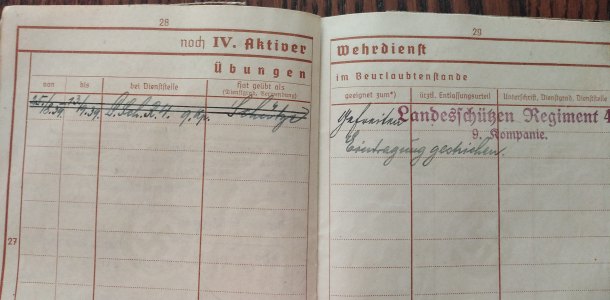 28
noch IV. Aktiver
Übungen
von
bis
bei Dienststelle
hat geübt als
(Dienstgrad, Verwendung)
L. Sch. R. 4. 9. Kp. Schütze
27
29
Wehrdienst
im Beurlaubtenstande
geeignet zum*)
ärztl. Entlassungsurteil
Unterschrift, Dienstgrad, Dienststelle
Gefreiten Landesschützen Regiment 4
9. Kompanie.
Eintragung gestrichen.